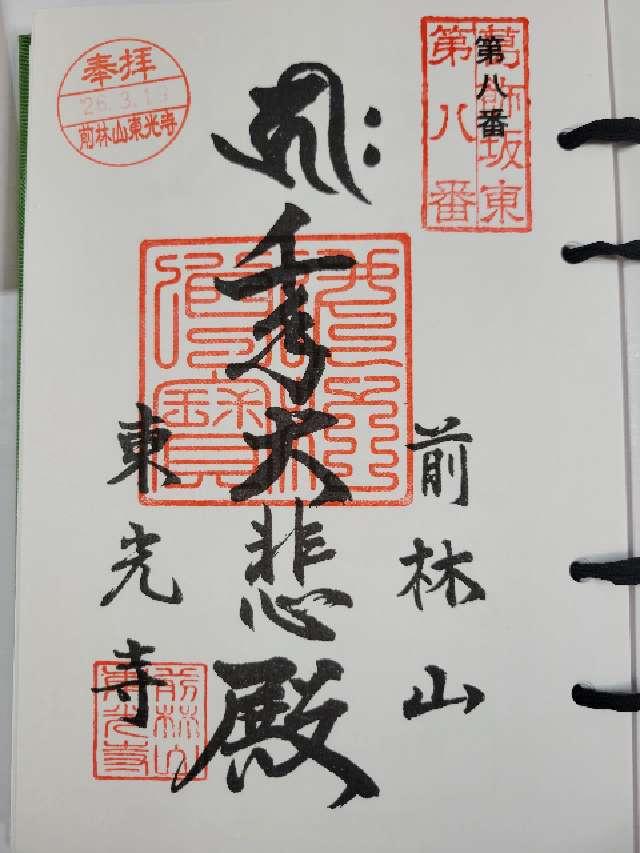 葛飾坂東
第八番
第八番
奉拝
前林山東光寺
前林山
大悲殿
東光寺
前林山
東光寺